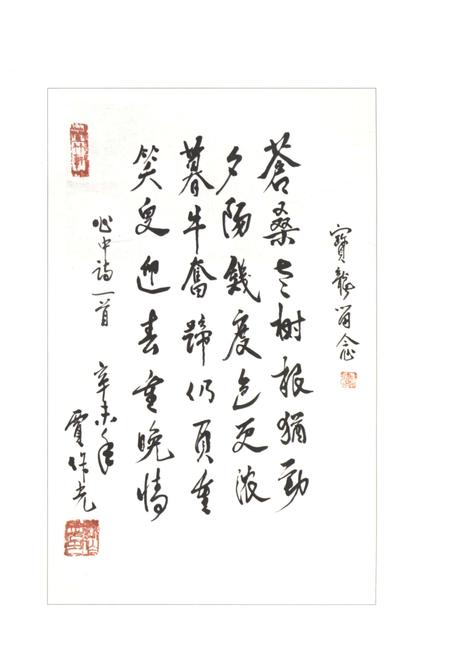 寶龍留念
蒼桑老樹根猶勁
夕陽幾度色更濃
暮牛奮蹄仍負重
笑叟迎春重晚情
心中詩一首
辛未年
賈作光